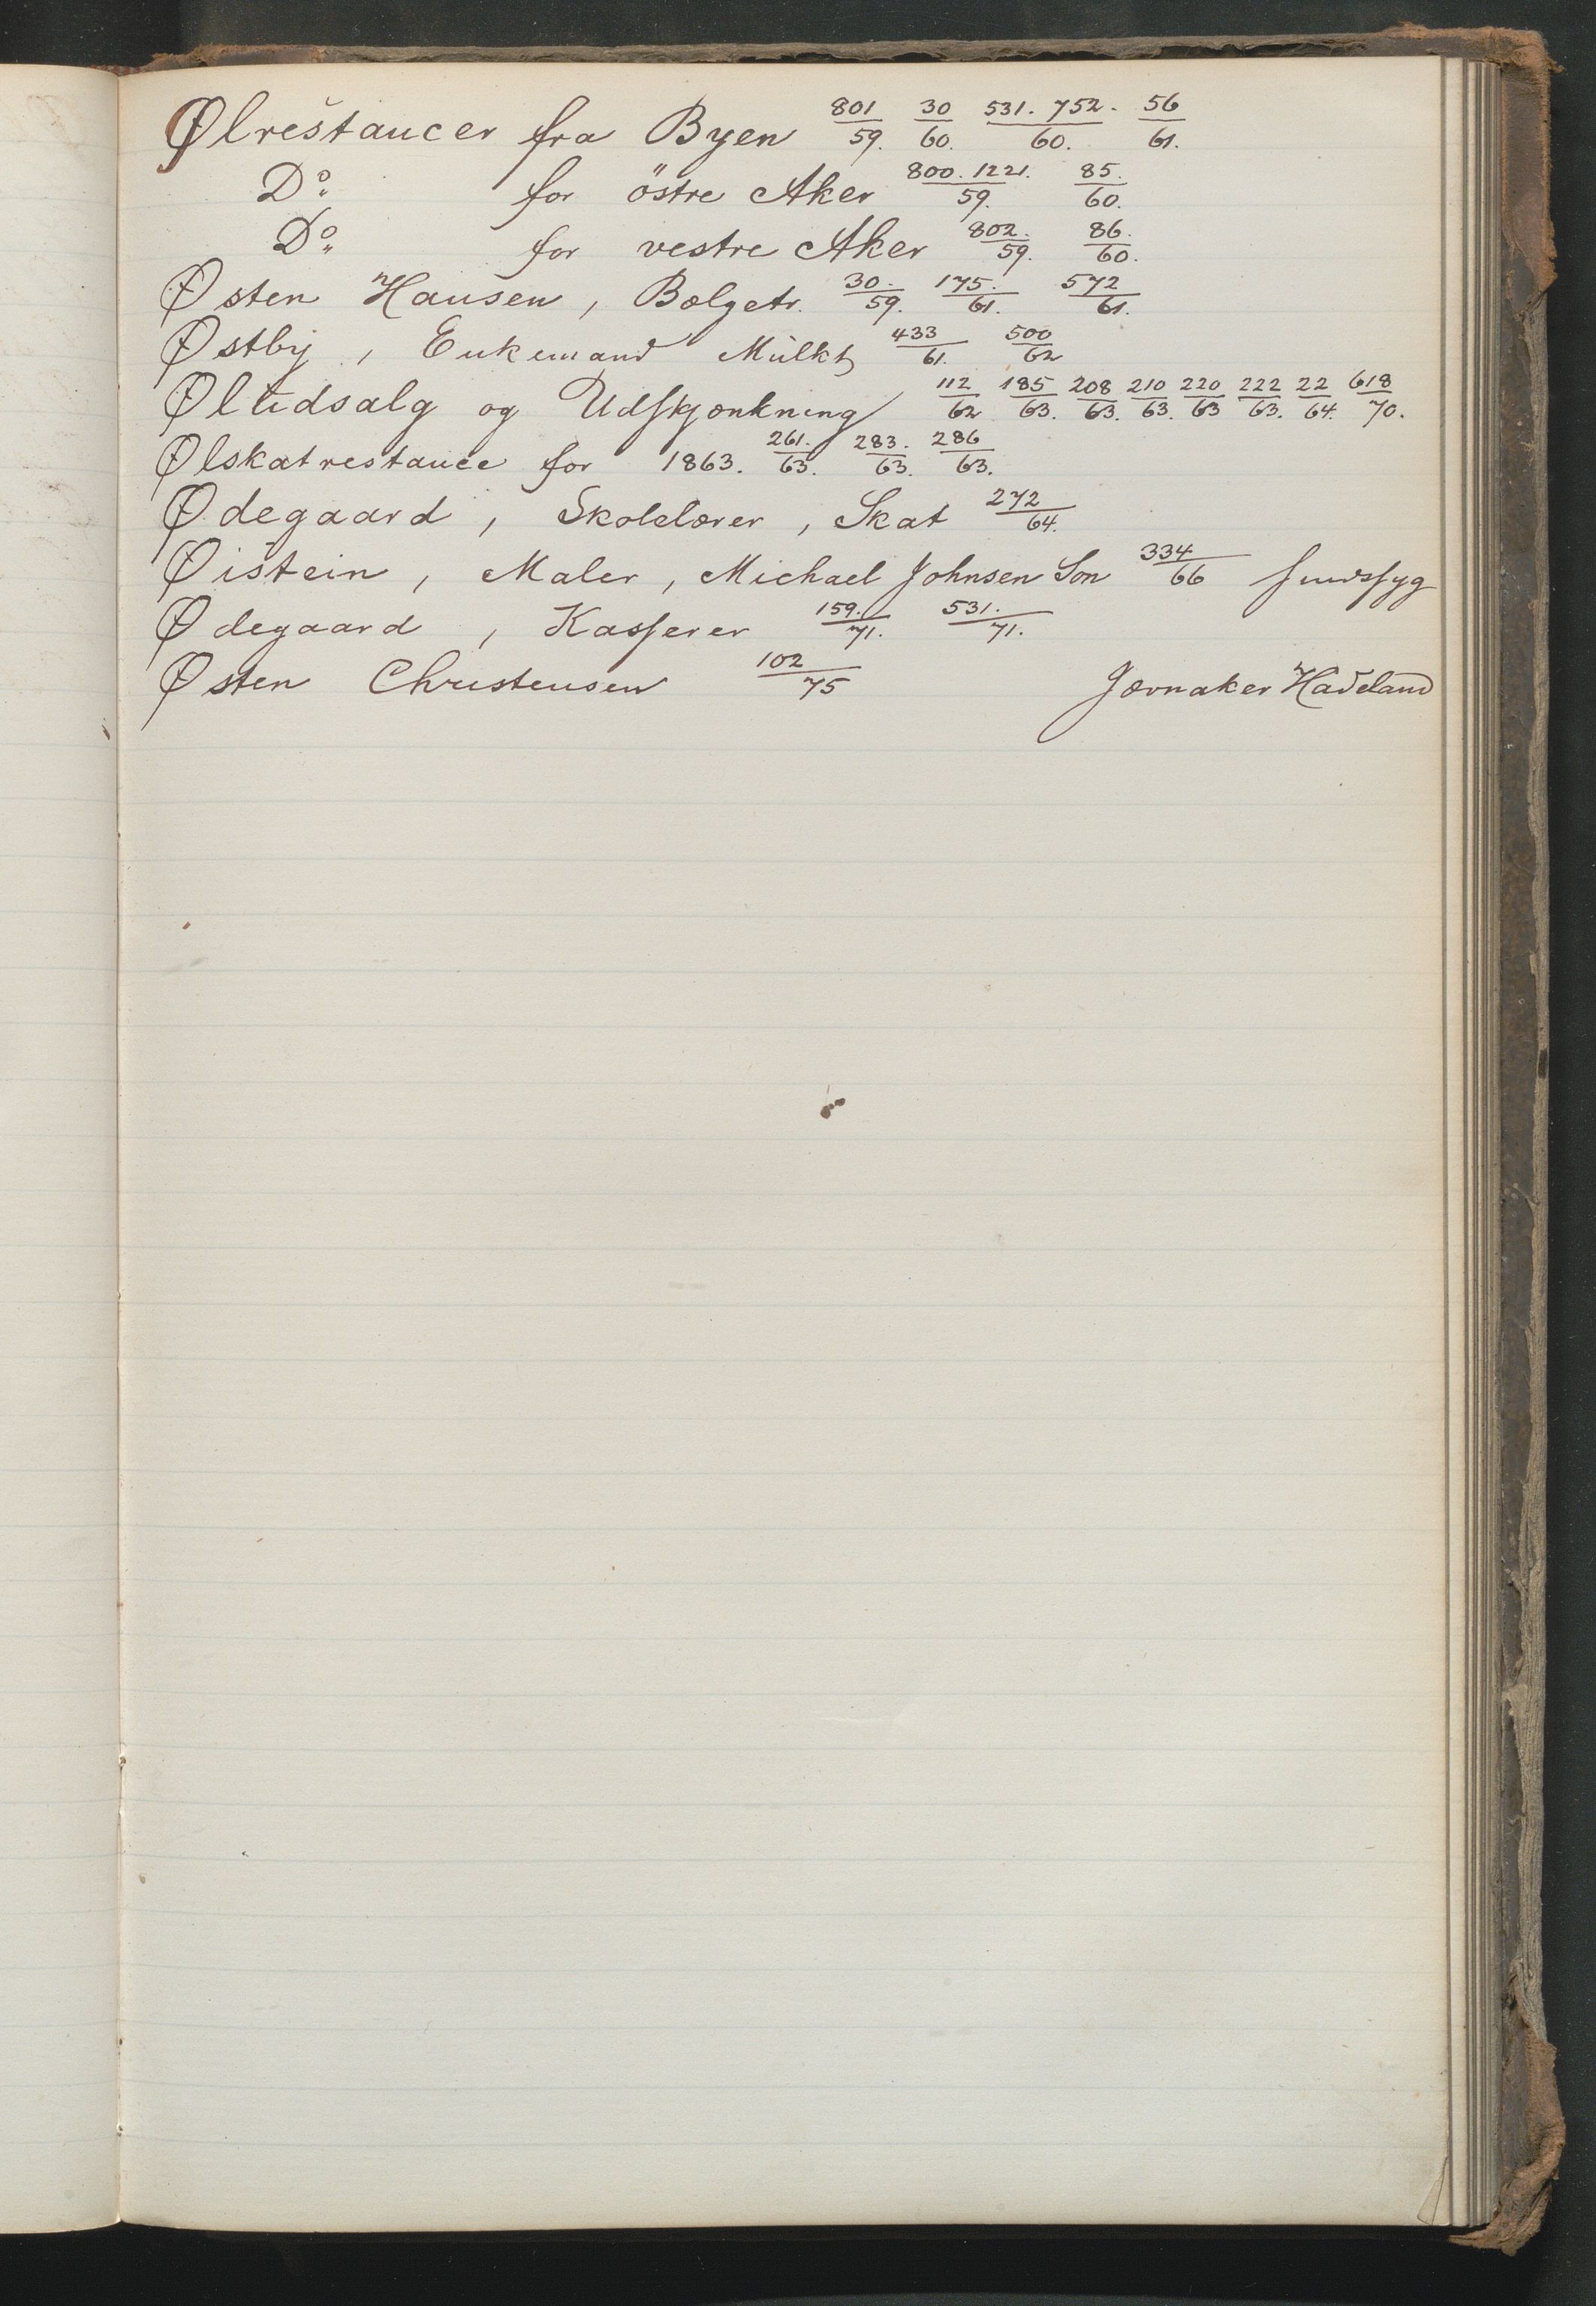 Ølrestancer fra Byen 801/59. 30/60. 531. 752./60. 56/61.
Do for östre Aker 800. 1221./59. 85./60.
Do for vestre Aker 802./59. 86./60.
Østen Hansen, Bælgetr. 30./59. 175./61. 572/61.
Østby, Enkemand Mulkt 433/61. 500/62
Øludsalg og Udskjænkning 112/62 185/63. 208/63. 210/63. 220/63 222/63. 22/64. 618/70.
Ølskatrestance for 1863. 261./63. 283./63. 286/63.
Ødegaard, Skolelærer, Skat 272/64.
Øistein, Maler, Michael Johnsen Søn 334/66 sindssyg
Ødegaard, Kasserer 159./71. 531./71.
Østen Christensen 102/75 Jævnaker Hadeland